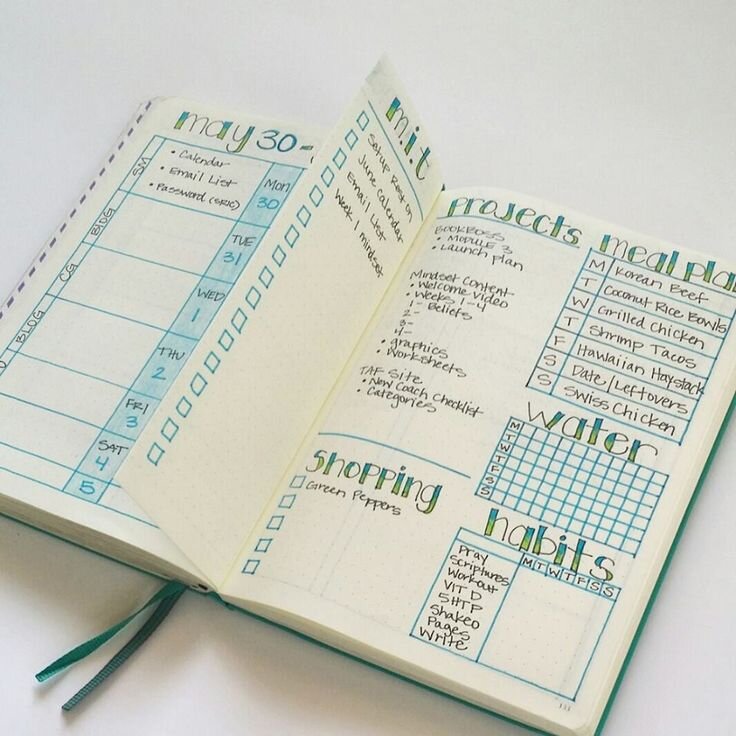 may 30 -
SM
BDG
CG
BLOG
• Calendar
• Email List
• Password (SRIC)
MON
30
TUE
31
WED
1
THU
2
FRI
3
SAT
4
5
m.i.t
Setup Rest on
June calendar
Email List
Week 1 mindset
projects
BOOKBOSS
• Module 3
• Launch plan
Mindset Content
• Welcome Video
• Weeks 1-4
1- Beliefs
2-
3-
4-
• graphics
• Worksheets
TAF Site
• New Coach Checklist
• Categories
shopping
Green Peppers
meal plan
M Korean Beef
T Coconut Rice Bowls
W Grilled Chicken
T Shrimp Tacos
F Hawaiian Haystack
S Date/Leftovers
S Swiss Chicken
water
M
T
W
T
F
S
S
habits
M T W T F S S
Pray
Scriptures
Workout
VIT D
5HTP
Shakeo
Pages
Write
133